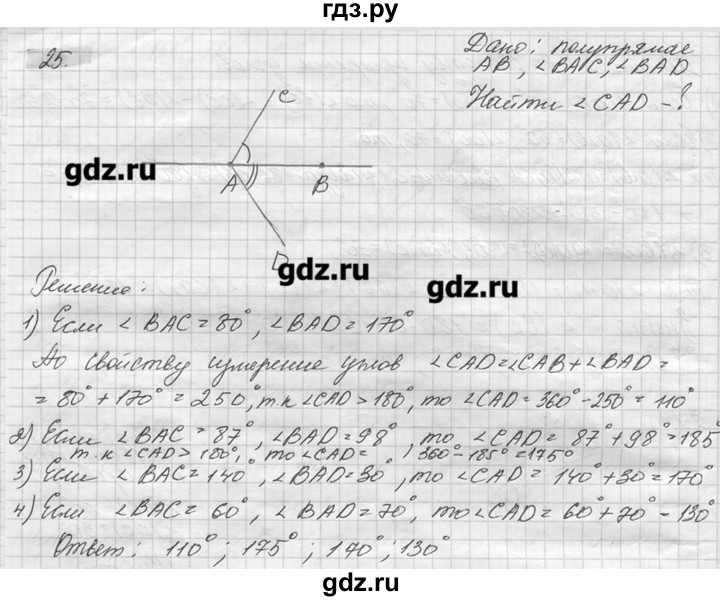 гдз.ру
25.
Дано: полупрямае
AB, ∠BAC, ∠BAD
Найти ∠CAD - ?
C
gdz.ru
A
B
D
gdz.ru
gdz.ru
Решение:
1) Если ∠BAC = 80°, ∠BAD = 170°
По свойству измерение углов ∠CAD = ∠CAB + ∠BAD =
= 80° + 170° = 250°, т.к ∠CAD > 180°, то ∠CAD = 360° - 250° = 110°
2) Если ∠BAC = 87°, ∠BAD = 98°, то ∠CAD = 87° + 98° = 185°
т.к ∠CAD > 180°, то ∠CAD = 360° - 185° = 175°
3) Если ∠BAC = 140°, ∠BAD = 30°, то ∠CAD = 140° + 30° = 170°
4) Если ∠BAC = 60°, ∠BAD = 70°, то ∠CAD = 60° + 70° - 130°
Ответ: 110°; 175°; 170°; 130°
gdz.ru